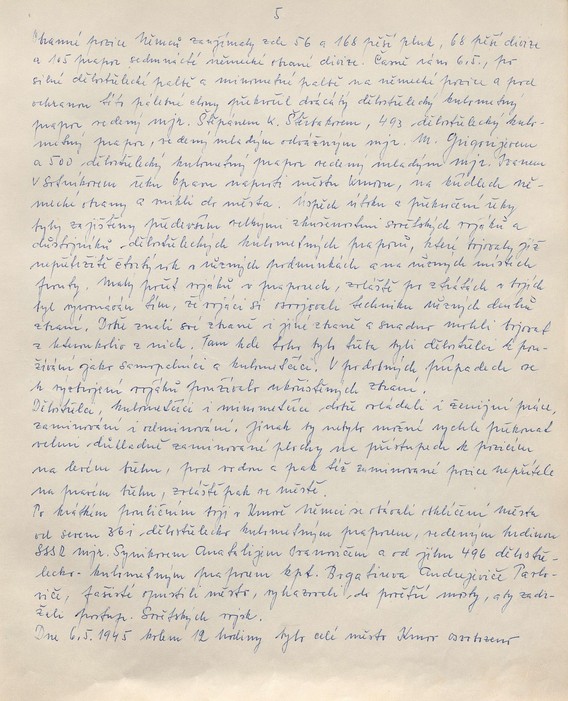 5
branné pozice Němců zaujímaly zde 56 a 168 pěší pluk, 68 pěší divize
a 105 prapor sedmnácté německé obrané divize. Časně ráno 6.5., po
silné dělostřelecké palbě a minometné palbě na německé pozice a pod
ochranou této palebné clony překročil dělostřelecký kulometný
prapor vedený mjr. Štěpánem K. 493 dělostřelecký kulo-
metný prapor, vedený mladým odvážným mjr. M. Grigorjevem
a 500 dělostřelecký kulometný prapor vedený mladým mjr. Ivanem
V řeku Opavu naproti městu Krnov, na křídlech ně-
mecké obrany a vnikli do města. Úspěch útoku a překročení řeky
byly zajištěny především velkými zkušenostmi sovětských vojáků a
důstojníků dělostřeleckých kulometných praporů, které bojovaly již
nepřetržitě čtvrtý rok v různých podmínkách a na různých místech
fronty. Malý počet vojáků v praporech, zvláště po ztrátách v bojích
byl vyrovnáván tím, že vojáci si osvojovali techniku různých druhů
zbraní. Dobře znali své zbraně i jiné zbraně a snadno mohli bojovat
z kterékoliv z nich. Tam kde toho bylo třeba byli dělostřelci k pou-
žívání jako samopalníci a kulometčíci. V podobných případech se
k vyzbrojení vojáků používalo ukořistěných zbraní.
Dělostřelci, kulometčíci i minometčíci dobře ovládali i ženijní práce,
zaminování i odminování. Jinak by nebylo možné rychle překonat
velmi důkladně zaminované plochy na přístupech k pozicím
na levém břehu, pod vodou a pak též zaminované pozice nepřítele
na pravém břehu, zvláště pak ve městě.
Po krátkém pouličním boji v Krnově Němci se obávali obklíčení města
od severu 361 dělostřelecko kulometným praporem, vedeným hrdinou
SSSR mjr. Synikovem Anatolijem Ivanovičem a od jihu 496 dělostře-
lecko-kulometným praporem kpt. Andrejeviče Pavlo-
viče, fašisté opustili město, vyhazovali do povětří mosty, aby zadr-
želi postup Sovětských vojsk.
Dne 6.5.1945 kolem 12 hodiny bylo celé město Krnov osvobozeno